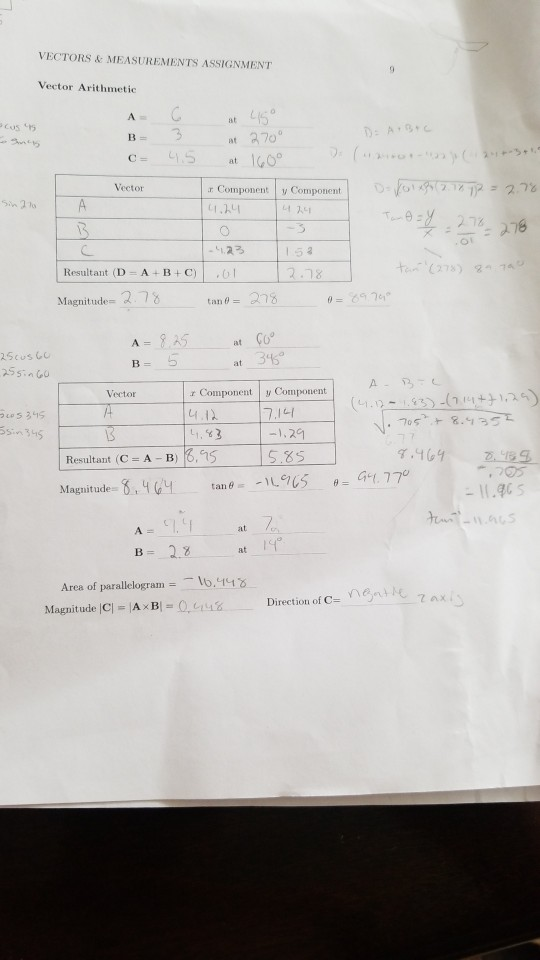 VECTORS & MEASUREMENTS ASSIGNMENT 9
Vector Arithmetic
A = 6 at 45°
B = 3 at 270° D = A+B+C
C = 4.5 at 160°
Vector x Component y Component
A 4.24 4.24
B 0 -3
C -4.23 1.53
Resultant (D = A + B + C) .01 2.78
= 2.78
Tanθ = y/x = 2.78/.01 = 278
tan⁻¹(278) 89.79°
Magnitude= 2.78 tan θ = 278 θ = 89.79°
A = 8.25 at 60°
B = 5 at 345°
25cos60
25sin60
5cos345
5sin345
Vector x Component y Component
A 4.12 7.14
B 4.83 -1.29
Resultant (C = A − B) 8.95 5.85
A - B = C
(4.12-4.83)-(7.14+1.29)
√.705²+8.435²
8.464
= -11.965
tan⁻¹-11.965
Magnitude= 8.464 tan θ = -11.965 θ = 94.77°
A = 4.4 at 7°
B = 2.8 at 14°
Area of parallelogram = -10.448
Magnitude |C| = |A×B| = 0.448 Direction of C= negative z axis